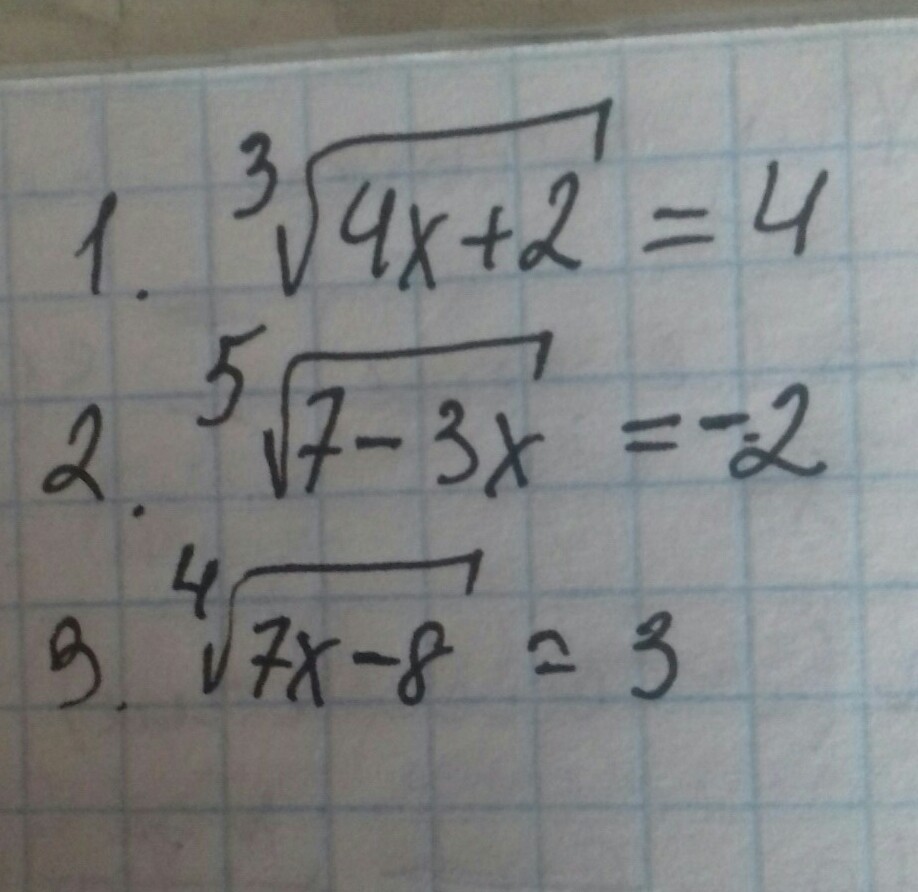 1. ∛(4x+2) = 4
2. ⁵√(7-3x) = -2
3. ⁴√(7x-8) = 3